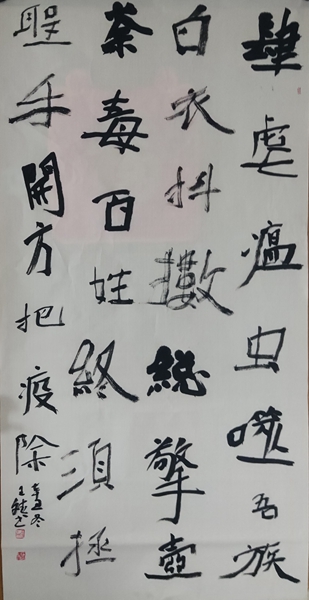 肆虐瘟虫噬吾族
白衣抖擻總擎壺
荼毒百姓終須拯
聖手開方把疫除
辛丑冬
王